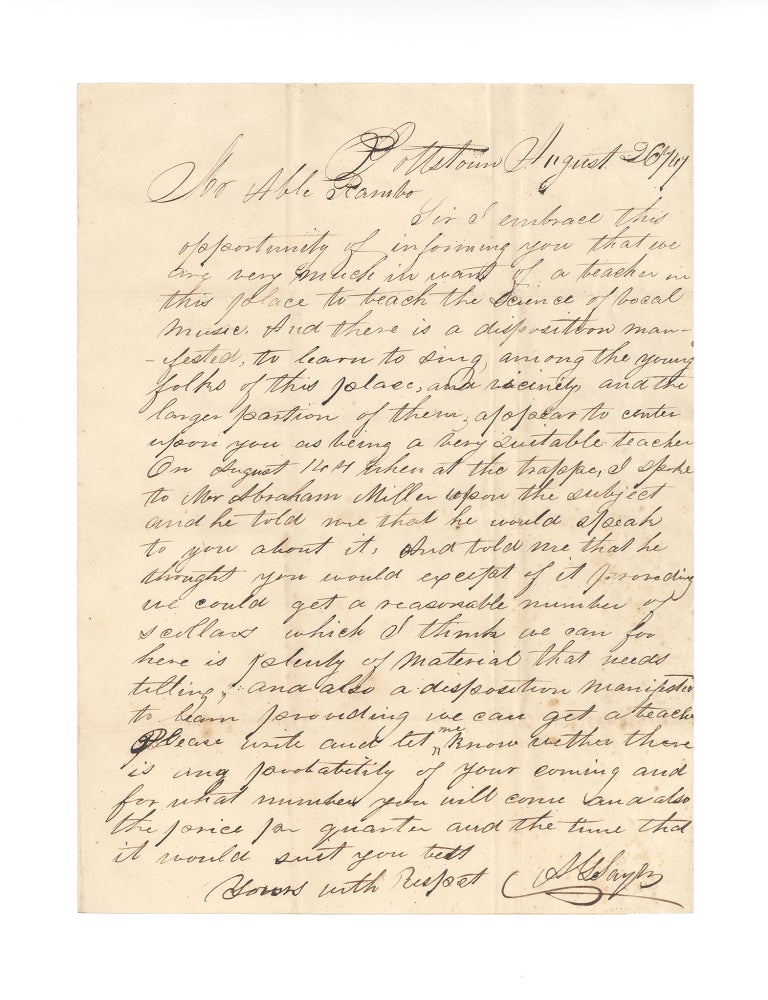 Pottstown August 26th/47
Mr Able Rambo
Sir I embrace this
opportunity of informing you that we
are very much in want of a teacher in
this place to teach the Science of vocal
music. And there is a disposition man-
-ifested, to learn to sing, among the young
folks of this place, and vicinity, and the
larger portion of them, appear to center
upon you as being a very suitable teacher
On August 14th when at the trappe, I spoke
to Mr Abraham Miller upon the subject
and he told me that he would speak
to you about it. And told me that he
thought you would except of it providing
we could get a reasonable number of
scollars which I think we can for
here is plenty of material that needs
tilling, and also a disposition manifested
to learn providing we can get a teacher
Please write and let me know wether there
is any probability of your coming and
for what number you will come and also
the price pr quarter and the time that
it would suit you best
Yours with Respect